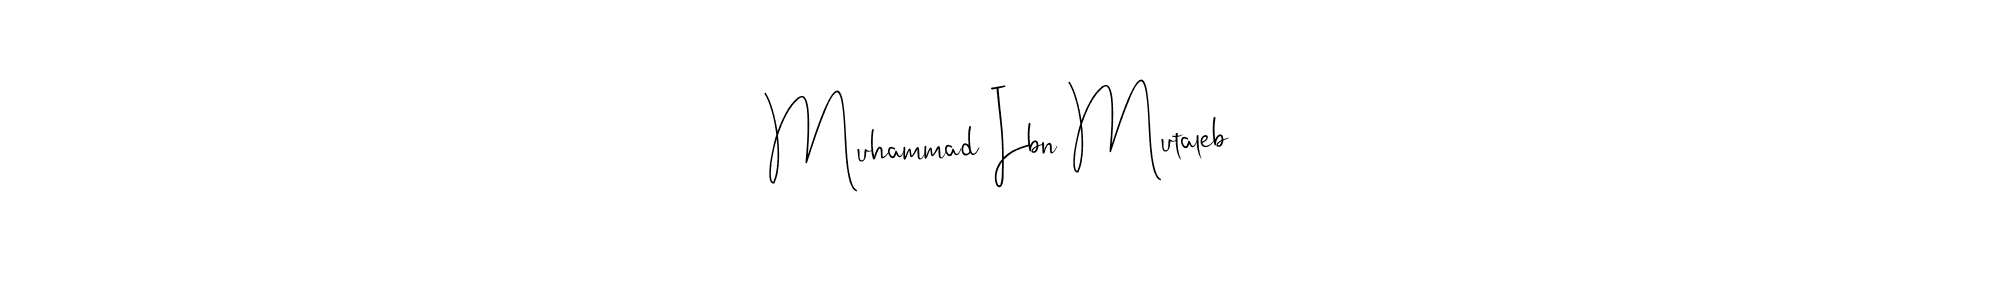 Muhammad Ibn Mutaleb